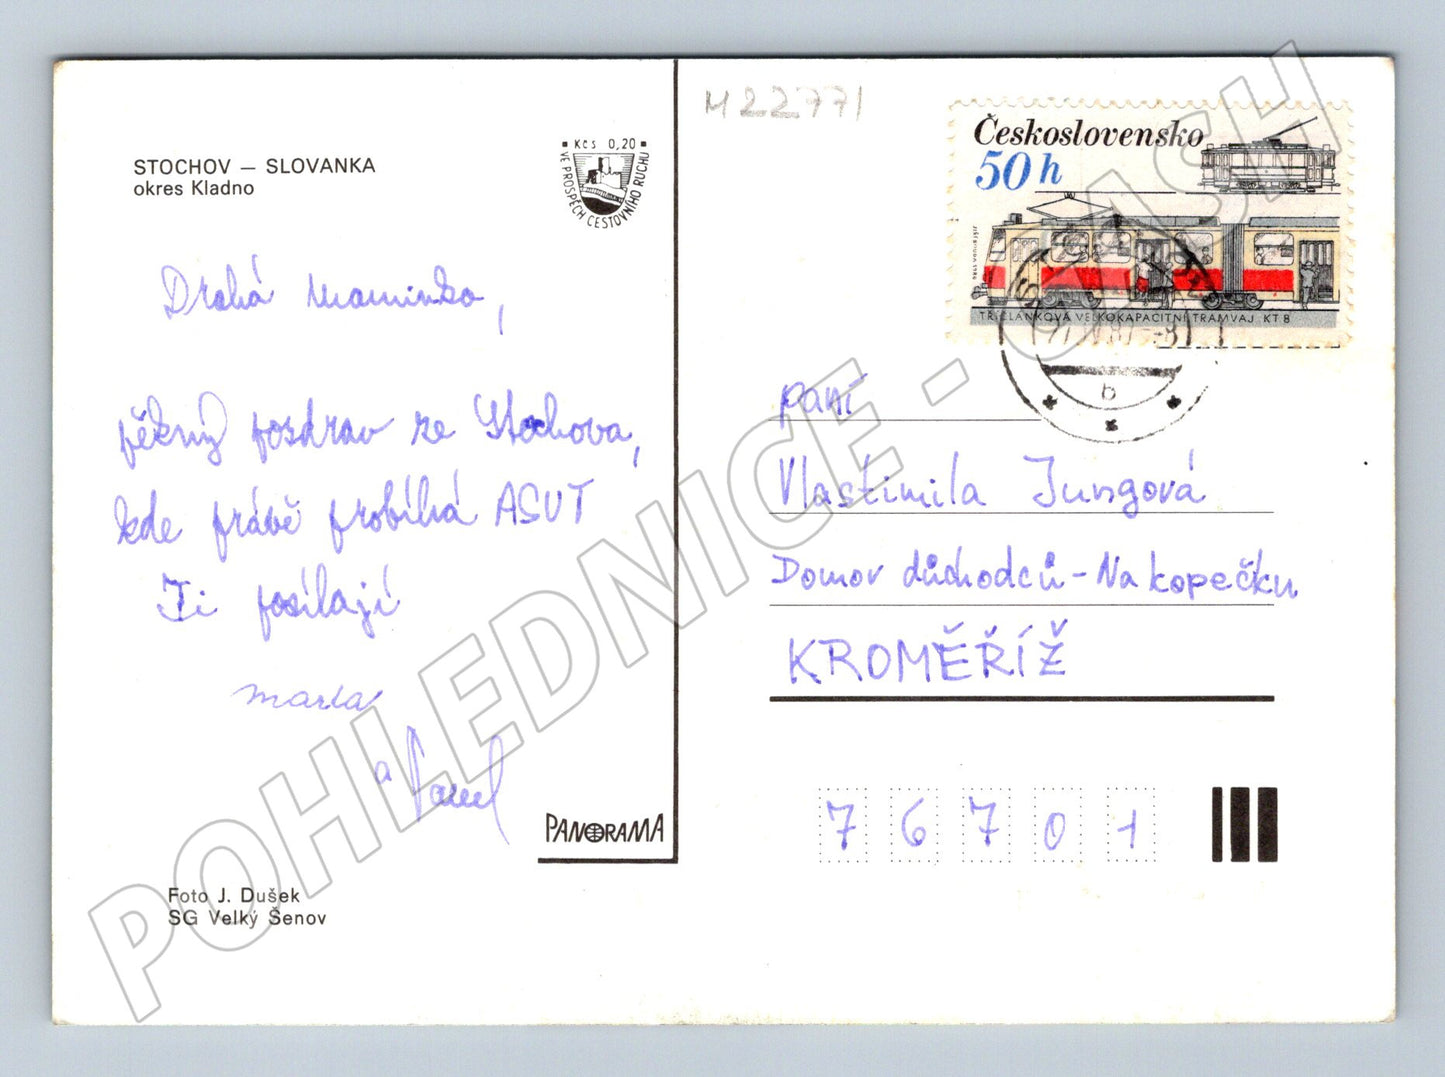 STOCHOV — SLOVANKA
okres Kladno
Kčs 0,20
VE PROSPĚCH CESTOVNÍHO RUCHU
Drahá Maminko,
pěkný pozdrav ze Stochova,
kde právě probíhá ASUT
Ti posílají
Marta
a Pavel
PANORAMA
Foto J. Dušek
SG Velký Šenov
M22771
Československo
50 h
TŘÍČLÁNKOVÁ VELKOKAPACITNÍ TRAMVAJ KT 8
b
paní
Vlastimila Jungová
Domov důchodců - Na kopečku
KROMĚŘÍŽ
7 6 7 0 1
POHLEDNICE - CASH